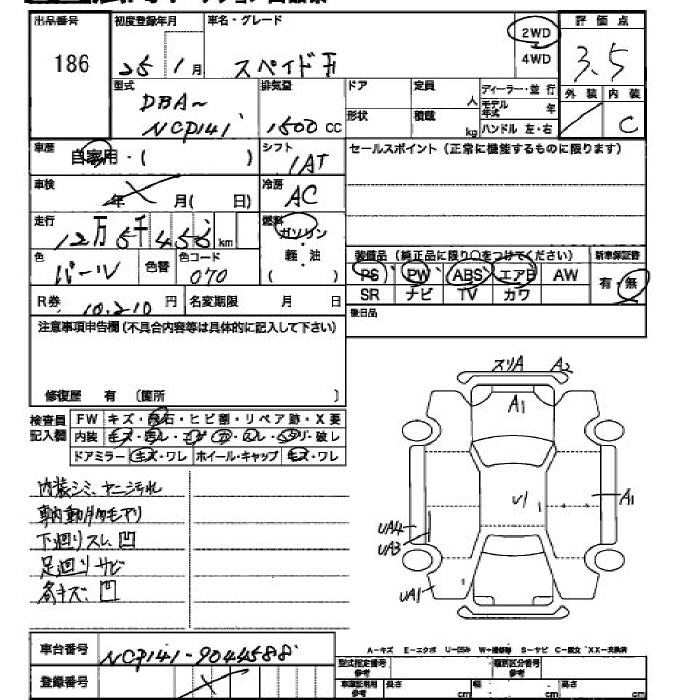 出品番号 初度登録年月 車名・グレード 2WD 4WD 評価点
186 25 1月 スペイド F 3.5
型式 排気量 ドア 定員 人 ディーラー・並行 外装 内装
DBA~ モデル年式 年
NCP141 1500 CC 形状 積載 kg ハンドル 左・右 C
車歴 自家用・( ) シフト 1AT セールスポイント(正常に機能するものに限ります)
車検 年 月( 日) 冷房 AC
走行 12万 5千 km 燃料 ガソリン・軽・油 ( )
装備品(純正品に限り○をつけてください) 新車保証書
色 パール 色替 色コード 070 PS PW ABS エアB AW 有・無
SR ナビ TV カワ
R券 10,210 円 名変期限 月 日
後日品
注意事項申告欄(不具合内容等は具体的に記入して下さい)
修復歴 有 〔箇所 〕
スリA A2
A1
検査員記入欄 FW キズ・飛石・ヒビ割・リペア跡・X要
内装
ドアミラー キズ・ワレ ホイール・キャップ キズ・ワレ
内装シミ、ヤニ汚れ
車内動物毛アリ
下廻りスレ、凹
足廻りサビ
各キズ、凹
U1 A1
UA4
UA3
UA1
A-キズ E-エクボ U-凹み W-補修跡 S-サビ C-腐食 XX-交換済
車台番号 NCP141-9044588
型式指定番号 参考 類別区分番号 参考
登録番号
長さ cm 幅 cm 高さ cm